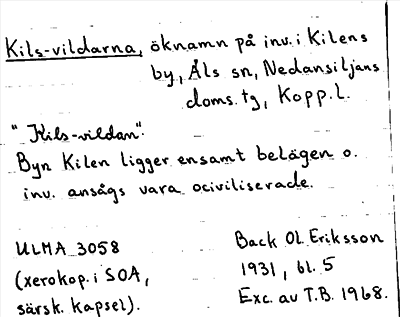 Kils-vildarna, öknamn på inv. i Kilens
by, Åls sn, Nedansiljans
doms. tg, Kopp. L.
"Kils-vildan".
Byn Kilen ligger ensamt belägen o.
inv. ansågs vara ociviliserade.
ULMA 3058
(xerokop. i SOA,
särsk. kapsel).
Back Ol. Eriksson
1931, bl. 5
Exc. av T.B. 1968.